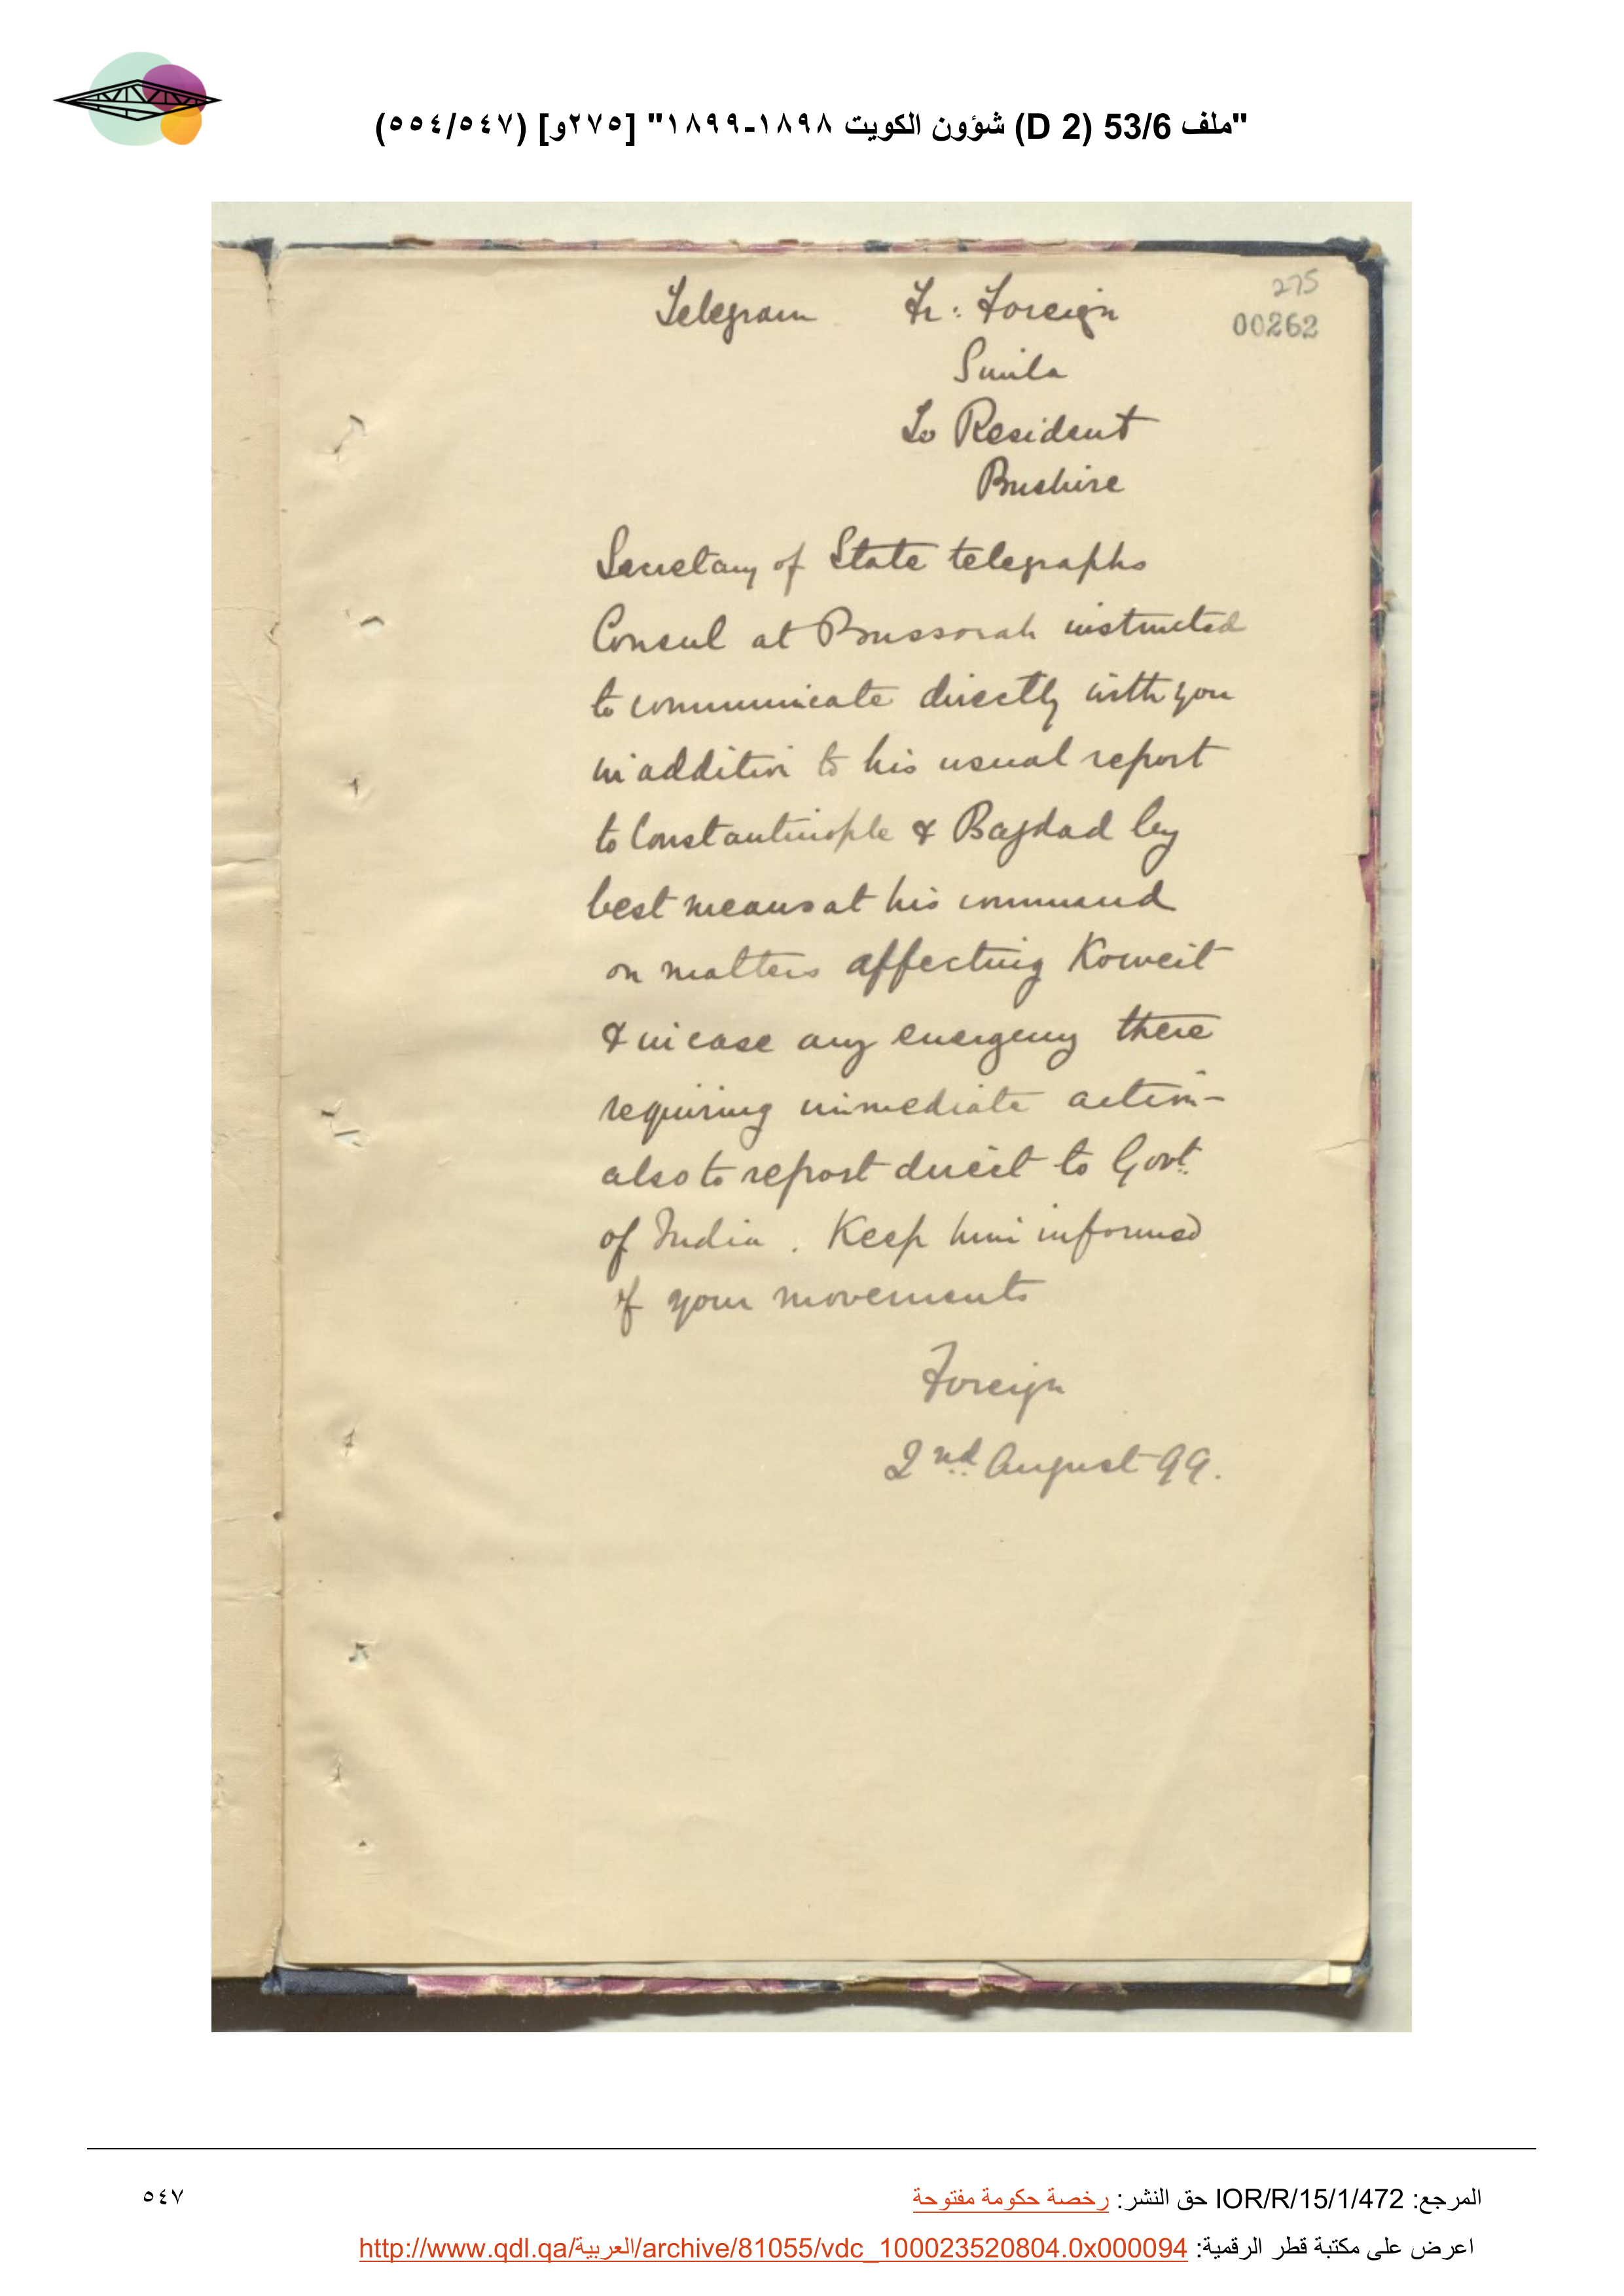 "ملف 53/6 (D 2) شؤون الكويت ١٨٩٨-١٨٩٩" [٢٧٥و] (٥٥٤/٥٤٧)
275
00262
Telegram Fr: Foreign
Simla
To Resident
Bushire
Secretary of State telegraphs
Consul at Bussorah instructed
to communicate directly with you
in addition to his usual report
to Constantinople & Bagdad by
best means at his command
on matters affecting Koweit
& in case any emergency there
requiring immediate action -
also to report direct to Govt.
of India. Keep him informed
of your movements
Foreign
2nd August 99.
المرجع: IOR/R/15/1/472 حق النشر: رخصة حكومة مفتوحة
٥٤٧
اعرض على مكتبة قطر الرقمية: http://www.qdl.qa/العربية/archive/81055/vdc_100023520804.0x000094